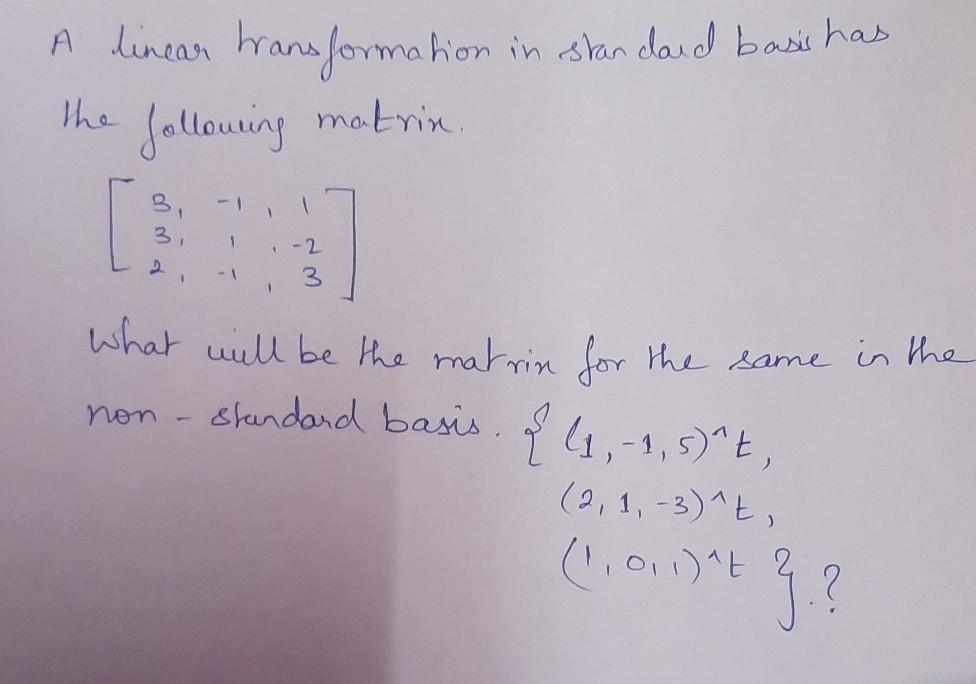 A linear transformation in standard basis has
the following matrix.
[ 3, -1, 1
3, 1, -2
2, -1, 3 ]
What will be the matrix for the same in the
non-standard basis. { (1,-1,5)^t,
(2, 1, -3)^t,
(1,0,1)^t }.?